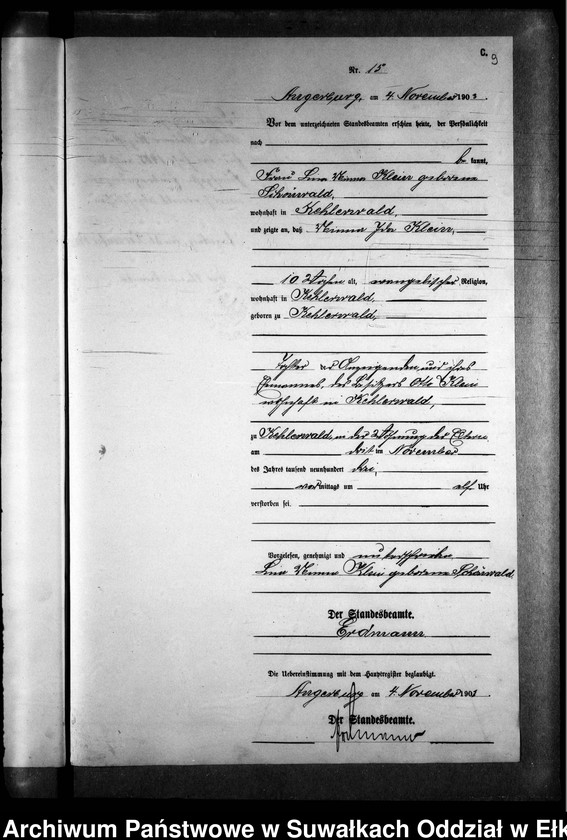 C.
9
Nr. 15
Angerburg, am 4. November 1903.
Vor dem unterzeichneten Standesbeamten erschien heute, der Persönlichkeit
nach
be kannt,
Frau Lina Minna Klein geborene
Schönwald,
wohnhaft in Kehlerwald,
und zeigte an, daß Minna Ida Klein,
10 Wochen alt, evangelischer Religion,
wohnhaft in Kehlerwald,
geboren zu Kehlerwald,
Tochter der Anzeigenden und ihres
Ehemannes, des Besitzers Otto Klein
wohnhaft in Kehlerwald,
zu Kehlerwald, in der Wohnung der Eltern
am dritten November
des Jahres tausend neunhundert drei,
vormittags um elf Uhr
verstorben sei.
Vorgelesen, genehmigt und unterschrieben
Lina Minna Klein geborene Schönwald.
Der Standesbeamte.
Erdmann
Die Uebereinstimmung mit dem Hauptregister beglaubigt.
Angerburg am 4. November 1903
Der Standesbeamte.
Erdmann
Archiwum Państwowe w Suwałkach Oddział w Ełk